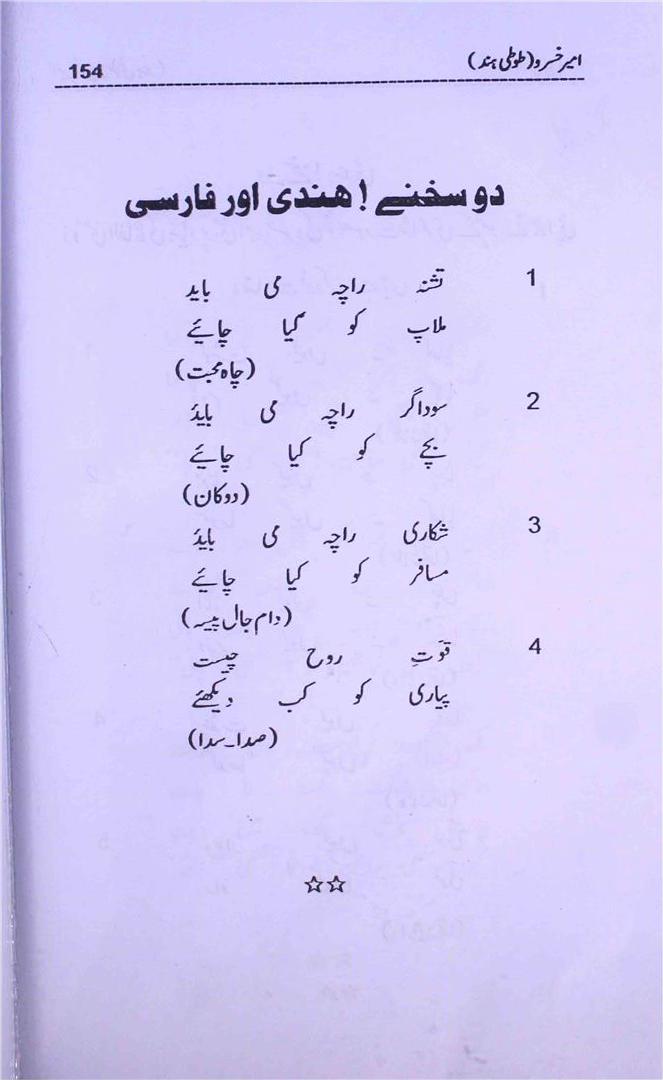 امیر خسرو (طوطی ہند) 154
دو سخنے ! ھندی اور فارسی
1 تشنہ راچہ می باید
ملاپ کو کیا چاہئے
(چاہ محبت)
2 سوداگر راچہ می باید
بچے کو کیا چاہئے
(دوکان)
3 شکاری راچہ می باید
مسافر کو کیا چاہئے
(دام جال پیسہ)
4 قوّتِ روح چیست
پیاری کو کب دیکھئے
(صدا۔سدا)
☆☆